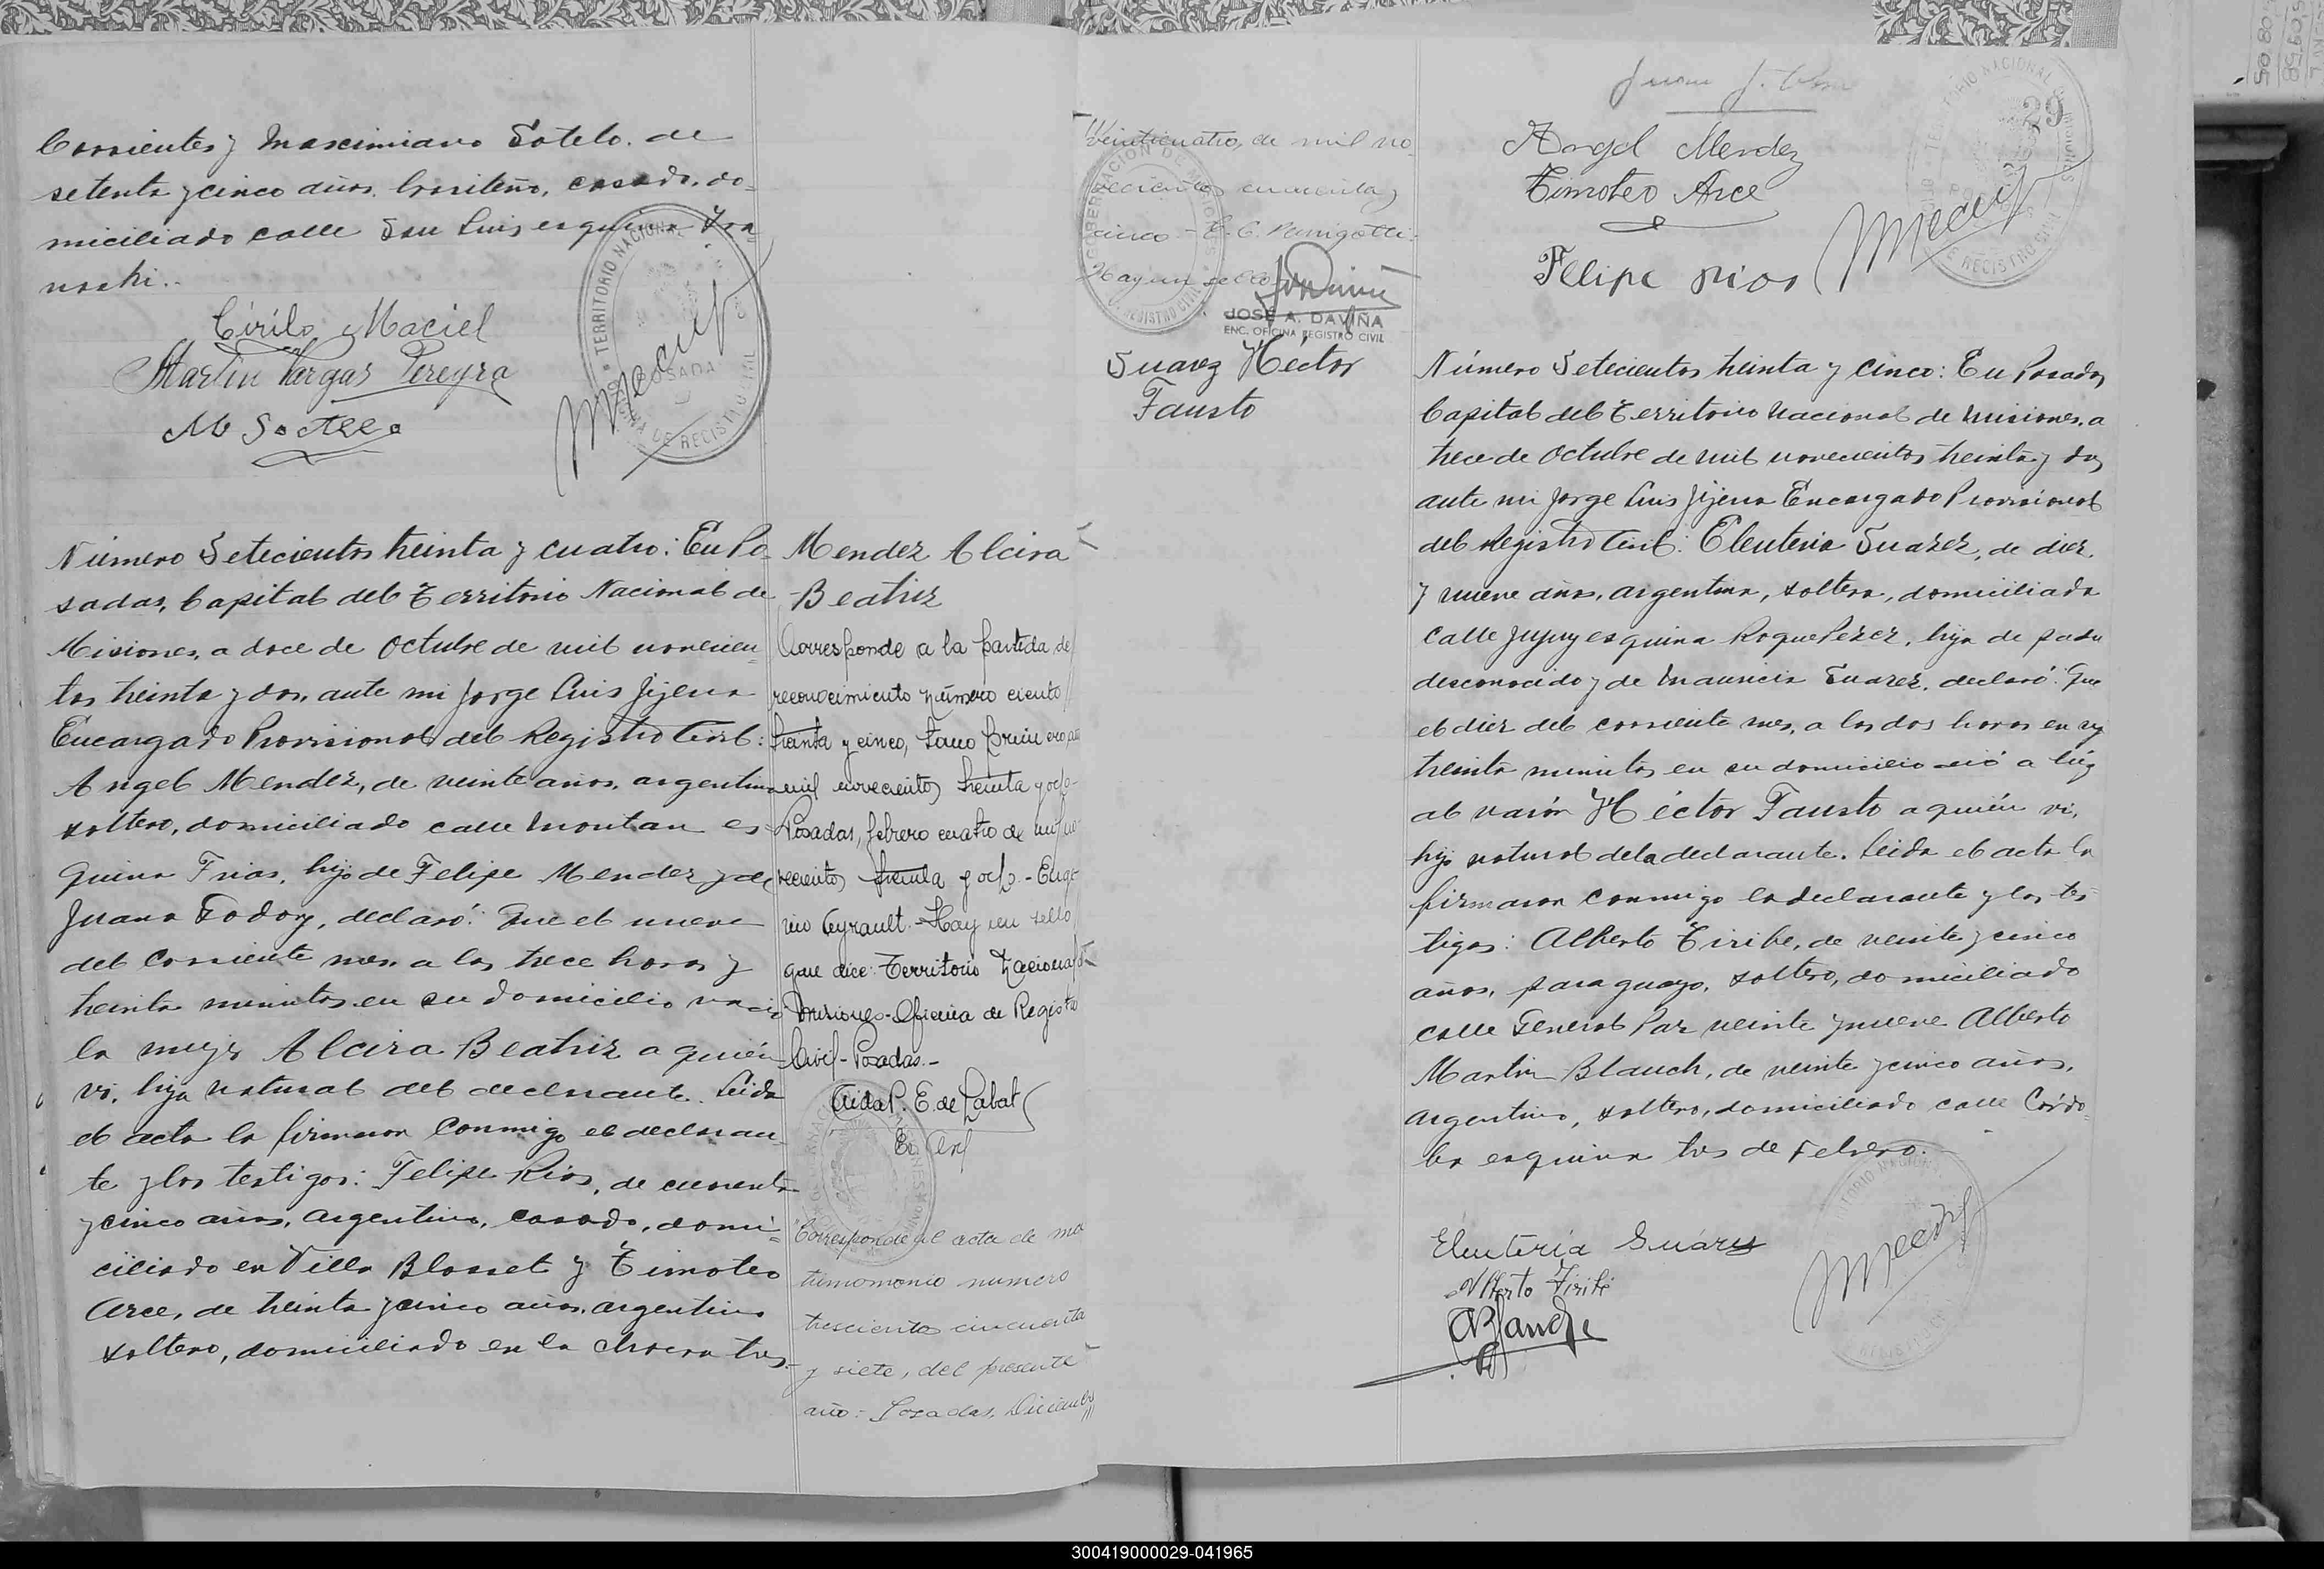 Corrientes y Mascimiano Sotelo. de
setenta y cinco años. Correteño, casado, do-
miciliado calle San Luis esquina
Cirilo Maciel
Martin Vargas Pereyra
M Sotelo
TERRITORIO NACIONAL
OFICINA DE REGISTRO CIVIL
POSADAS
Número Setecientos treinta y cuatro: En Po-
sadas, Capital del Territorio Nacional de
Misiones, a doce de Octubre de mil novecien-
tos treinta y dos, ante mi Jorge Luis Jijena
Encargado Provisional del Registro Civil:
Angel Mendez, de veinte años, argentino
soltero, domiciliado calle es-
quina Frias, hijo de Felipe Mendez y de
Juana Godoy, declaró: Que el nueve
del corriente mes a las trece horas y
treinta minutos en su domicilio nació
la mujer Alcira Beatriz a quién
vi, hija natural del declarante. Leida
el acta la firmaron conmigo el declaran-
te y los testigos: Felipe Rios, de cuarenta
y cinco años, argentino, casado, domi-
ciliado en Villa Blosset y Timoteo
Arce, de treinta y cinco años, argentino
soltero, domiciliado en la chacra tres.
Mendez Alcira
Beatriz
Corresponde a la partida de
reconocimiento número ciento
treinta y cinco, tomo primero,
mil novecientos treinta y ocho-
Posadas, febrero cuatro de mil no-
vecientos treinta y ocho.- Euge-
nio Ayrault.- Hay un sello
que dice: Territorio Nacional de
Misiones-Oficina de Registro
Civil-Posadas.-
Aida P. E. de Labat
"Corresponde al acta de ma
trimomonio numero
trescientos cincuenta
y siete, del presente
año: Posadas, Diciembre
Veinticuatro, de mil no-
vecientos cuarenta y
cinco -
Hay un sello
GOBERNACION DE MISIONES
REGISTRO CIVIL
JOSE A. DAVIÑA
ENC. OFICINA REGISTRO CIVIL
Suarez Hector
Fausto
Juan J.
29
Angel Mendez
Timoteo Arce
Felipe Rios
Número Setecientos treinta y cinco: En Posadas,
Capital del Territorio Nacional de Misiones, a
trece de Octubre de mil novecientos treinta y dos,
ante mi Jorge Luis Jijena Encargado Provisional
del Registro Civil: Eleuteria Suarez, de diez
y nueve años, argentina, soltera, domiciliada
calle Jujuy esquina Roque Perez, hija de padre
desconocido y de Mauricia Suarez, declaró: Que
el diez del corriente mes, a las dos horas
treinta minutos en su domicilio dió a lúz
al varón Héctor Fausto a quién vi,
hijo natural de la declarante. Leida el acta la
firmaron conmigo la declarante y los tes-
tigos: Alberto Tiribe, de veinte y cinco
años, paraguayo, soltero, domiciliado
calle General Paz veinte y nueve Alberto
Martin Blauch, de veinte y cinco años,
argentino, soltero, domiciliado calle Córdo-
ba esquina tres de Febrero.-
Eleuteria Suárez
Alberto Tiribe
ABlauch
300419000029-041965